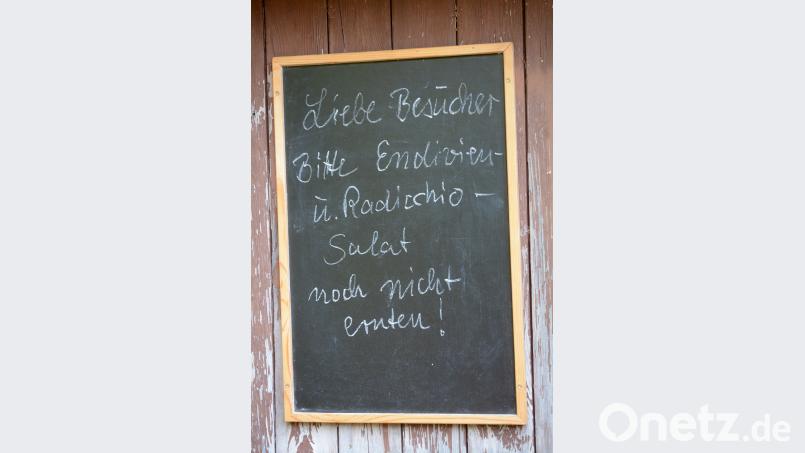 Liebe Besucher
Bitte Endivien-
u. Radicchio-
Salat
noch nicht
ernten!
Onetz.de